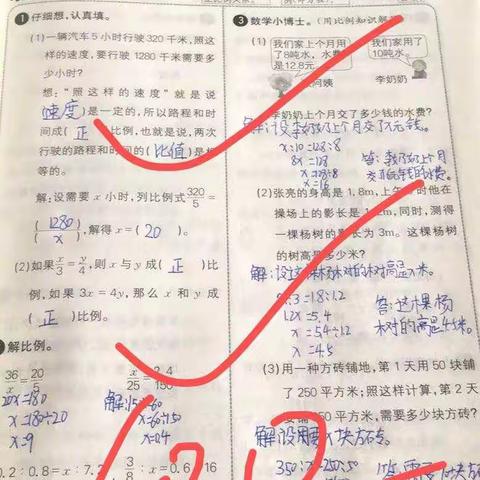 ❶ 仔细想,认真填。
(1)一辆汽车5小时行驶320千米,照这
样的速度,要行驶1280千米需要多
少小时?
想:“照这样的速度”就是说
(速度)是一定的,所以路程和时
间成(正)比例,也就是说,两次
行驶的路程和时间的(比值)是相
等的。
解:设需要x小时,列比例式320/5=
(1280)/(x),解得x=(20)。
(2)如果x/3=y/4,则x与y成(正)比
例,如果3x=4y,那么x和y成
(正)比例。
解比例。
36/x=20/5
20x=180
x=180÷20
x=9
x/25=2.4/150
x=0.4
0.2:0.8=x:7.2
3/8:x=0.6:16
❸ 数学小博士。(用比例知识解
(1)
我们家上个月用
了8吨水,水费
是12.8元。
我们家用了
10吨水。
李奶奶
李奶奶上个月交了多少钱的水费?
解:设李奶奶上个月交了x元钱。
x:10=12.8:8
8x=128
x=128÷8
x=16
答:李奶奶上个月
(2)张亮的身高是1.8m,上午 时他在
操场上的影长是1.2m,同时,测得
一棵杨树的影长为3m。这棵杨树
的树高是多少米?
x:3=1.8:1.2
1.2x=5.4
x=5.4÷1.2
x=4.5
答:这棵杨
树的高是4.5米。
(3)用一种方砖铺地,第1天用50块铺
了250平方米;照这样计算,第2天
350平方米,需要多少块方砖?
解:设需要x块方砖。
350:x=250:50